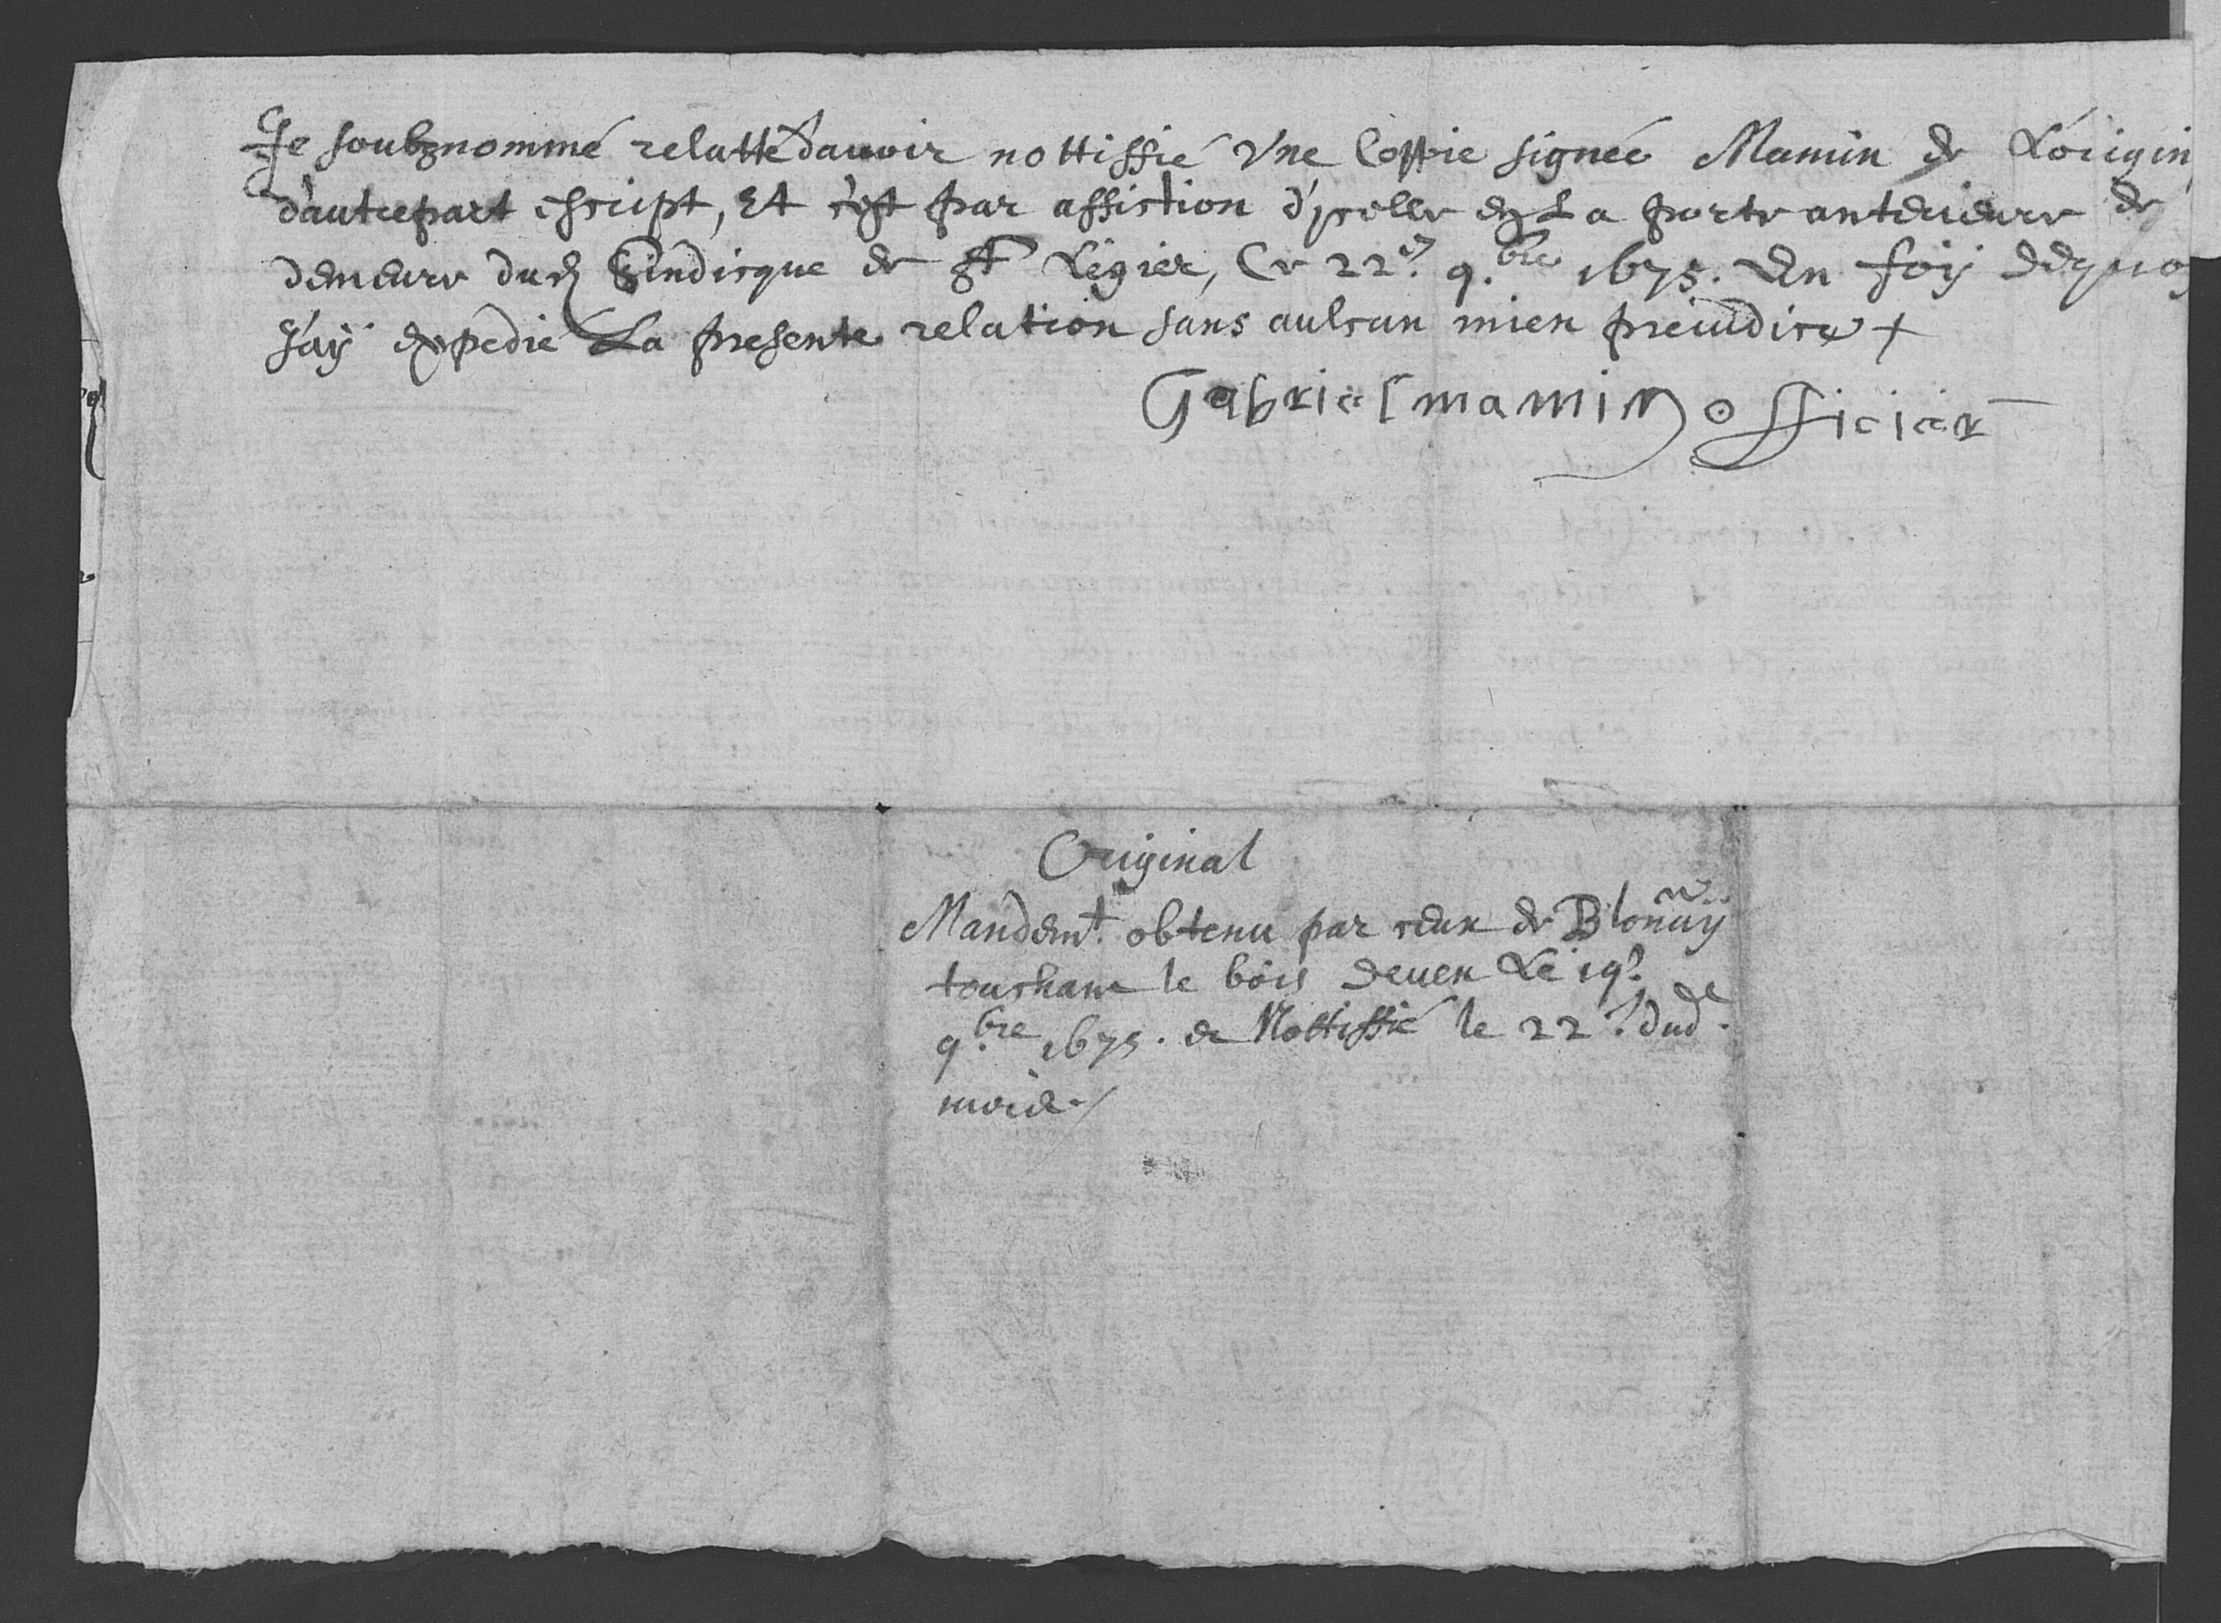 Je soubznommé relatte d'auvoir nottiffié Vne Coppie signée Mamin de L'origin
d'autrepart escript, Et c'est par affiction d'ycelle en La porte anterieure de
demeure dud Sindicque de St Légier, Ce 22e. 9.bre 1675. En foÿ dequoy
J'aÿ expedié La presente relation sans aulcun mien preiudice +
Gabriel mamin officier
Original
Mandemt. obtenu par ceux de Blonaÿ
touchant le bois deuen Le 19e.
9.bre 1675. et Nottiffié le 22e. dud.
mois./